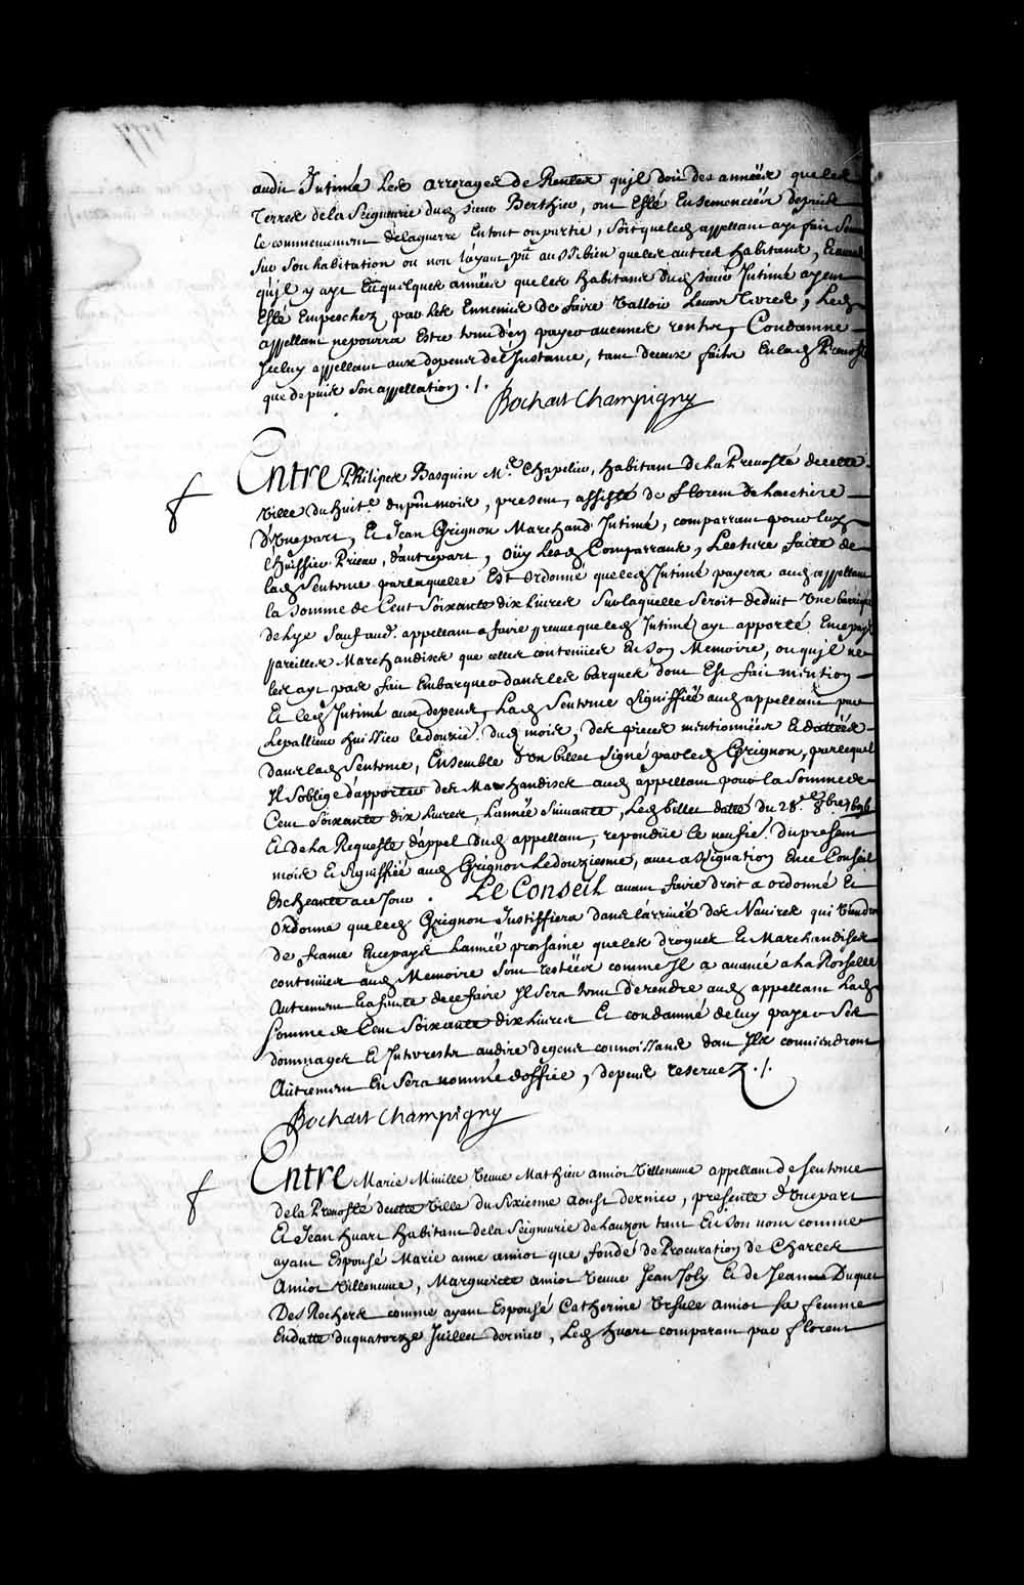 audit Intimé les arrerages de Rentes qu'il doit des années que les
Terres de la Seigneurie dud. sieur Berthier, ont Esté Ensemencéës depuis
le commencement de la guerre En tout ou partie, soit que led. appellant ayt fait
sur son habitation ou non l'ayant pû aussi bien que les autres habitans, Et
qu'il y ayt Eü quelques annéës que les habitans dud. sieur Intimé ayent
Esté Empeschez par les Ennemis de faire valloir leurs Terres, led.
appellant ne pourra Estre tenu d'en payer aucunes rentes, Condamne
Iceluy appellant aux depens de l'Instance, tant de ceux faits En lad. Prevosté
que depuis son appellation ./.
Bochart Champigny
Entre Philipes Basquin Me. Chapelier, habitant de la Prevosté de cette
Ville du huite. du pnt. mois, present, assisté de Florent de Lacetiere
d'Une part, Et Jean Grignon Marchand Intimé, comparrant pour luy
l'huissier Prieur, d'autre part, Oüy lesd. Comparrans, Lecture faite de
lad. Sentence par laquelle Est ordonné que led. Intimé payera aud. appellant
la somme de Cent Soixante dix livres sur laquelle seroit deduit Une barrique
de lye sauf aud. appellant a faire preuve que led. Intimé ayt apporté En ce pays
pareilles Marchandises que celles contenües En son Memoire, ou qu'il ne
les ayt pas fait Embarquer dans les barques dont Est fait mention
Et led. Intimé aux depens, Lad. Sentence signiffiéë aud. appellant par
Lepallieur huissier le douzie. dud. mois, des pieces mentionnéës Et dattéës
dans lad. Sentence, Ensemble d'Un billet signé par led. Grignon, par lequel
Il s'oblige d'apporter des Marchandises aud. appellant pour la somme de
Cent Soixante dix livres, l'année suivante, led. billet datté du 28e. 8bre. 1696
Et de la Requeste d'appel dud. appellant, repondüe le neufie. du present
mois Et signiffiéë aud. Grignon le douziesme, avec assignation En ce Conseil
Escheante a ce jour. Le Conseil avant faire droit a ordonné Et
Ordonne que led. Grignon Justiffiera dans l'arrivéë des Navires qui viendront
de france En ce pays l'annéë prochaine que les drogues Et Marchandises
contenües aud. Memoire sont restéës comme Il a avancé a la Rochelle
Autrement Et a faute de ce faire Il sera tenu de rendre aud. appellant lad.
somme de Cent Soixante dix livres Et condamné de luy payer ses
dommages Et Interests au dire de gens connoissans dont Ils conviendront
Autrement En sera nommé d'office, depens reservez ./.
Bochart Champigny
Entre Marie Miville Veuve Mathieu amiot Villeneuve appellant de sentence
de la Prevosté de cette Ville du sixiesme aoust dernier, presente d'Une part
Et Jean huart habitant de la Seigneurie de Lauzon tant En son nom comme
ayant Espousé Marie anne amiot que fondé de Procuration de Charles
Amiot Villeneuve, Marguerite amiot Veuve Jean Joly Et de Jean Duquet
Des Rochers comme ayant Espousé Catherine Ursule amiot sa femme
En datte du quatorze Juillet dernier, Led. huart comparant par Florent